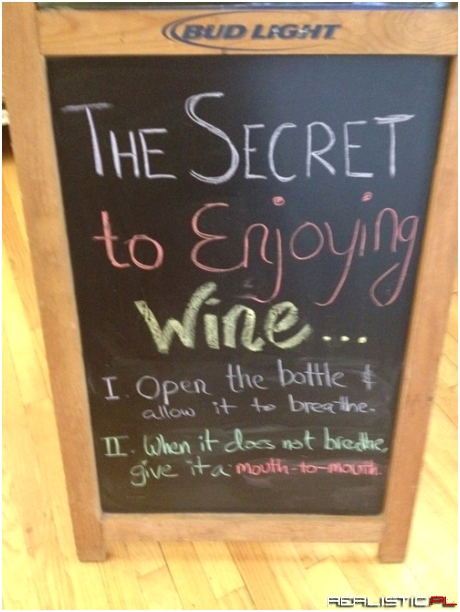 BUD LIGHT
THE SECRET
to Enjoying
Wine...
I. Open the bottle &
allow it to breathe.
II. When it does not breathe,
give it a mouth-to-mouth.
REALISTICPL